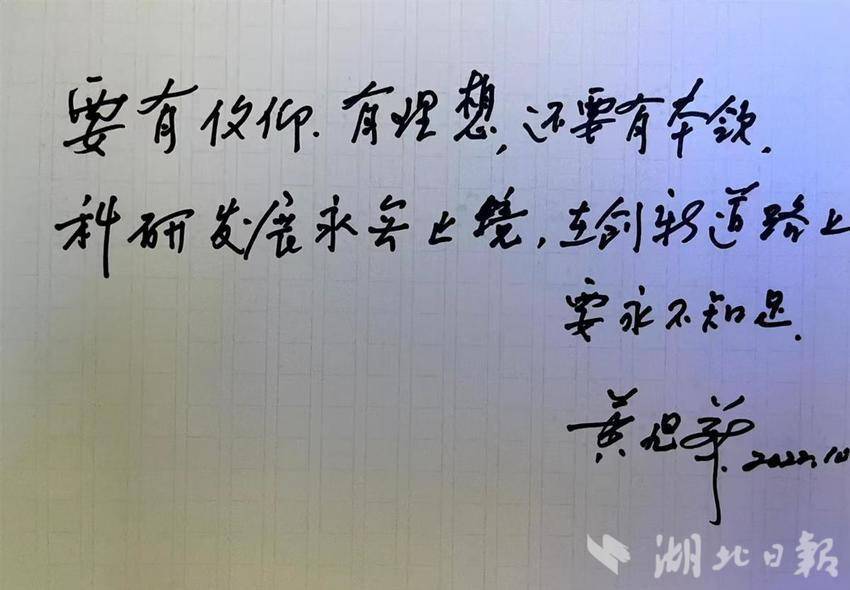 要有信仰.有理想,还要有本领.
科研发展永无止境,在创新道路上
要永不知足.
黄旭华 2022.10
湖北日報